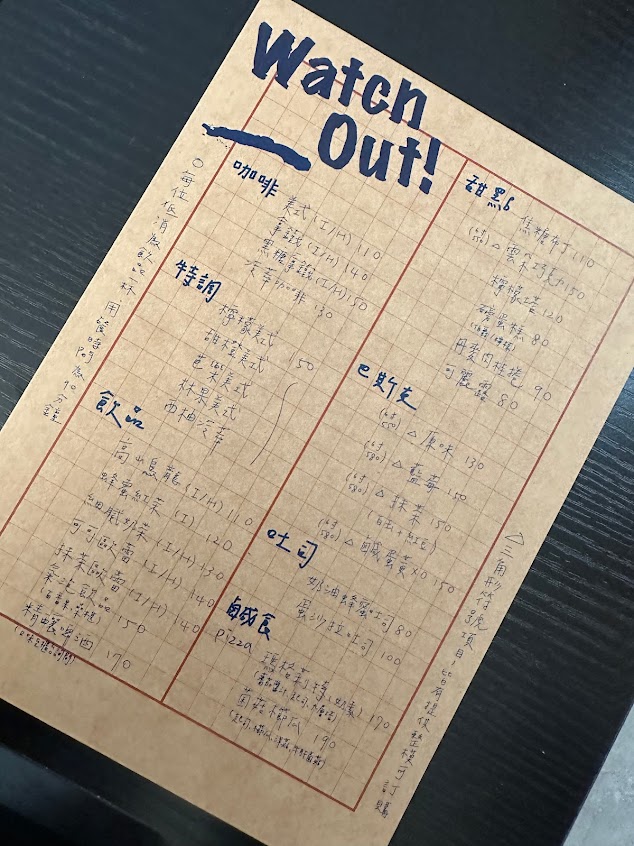 Watch
Out!
咖啡
美式(I/H) 110
拿鐵(I/H) 140
黑糖拿鐵(I/H) 150
冷萃咖啡 130
特調
檸檬美式
甜橙美式 150
芭樂美式
林果美式
西柚冷萃
飲品
高山烏龍(I/H) 110
蜂蜜紅茶(I) 120
細膩奶茶(I/H) 130
可可歐蕾(I/H) 140
抹茶歐蕾(I/H) 140
氣泡飲品 150
精釀啤酒 170
甜點
焦糖布丁 110
(6吋) △ 雲朵巧克力 150
檸檬塔 120
磅蛋糕 80
丹麥肉桂捲 90
可麗露 80
巴斯克
(6吋 550) △ 原味 130
(6吋 580) △ 藍莓 150
(6吋 580) △ 抹茶 150
(6吋 580) △ 鹹蛋黃XO 150
吐司
奶油蜂蜜吐司 80
蛋沙拉吐司 100
鹹食
pizza
瑪格莉特(奶素) 170
菌菇櫛瓜 190
○每位低消為飲品一杯 用餐時間為90分鐘
△三角形符號項目,皆有提供整模可訂購